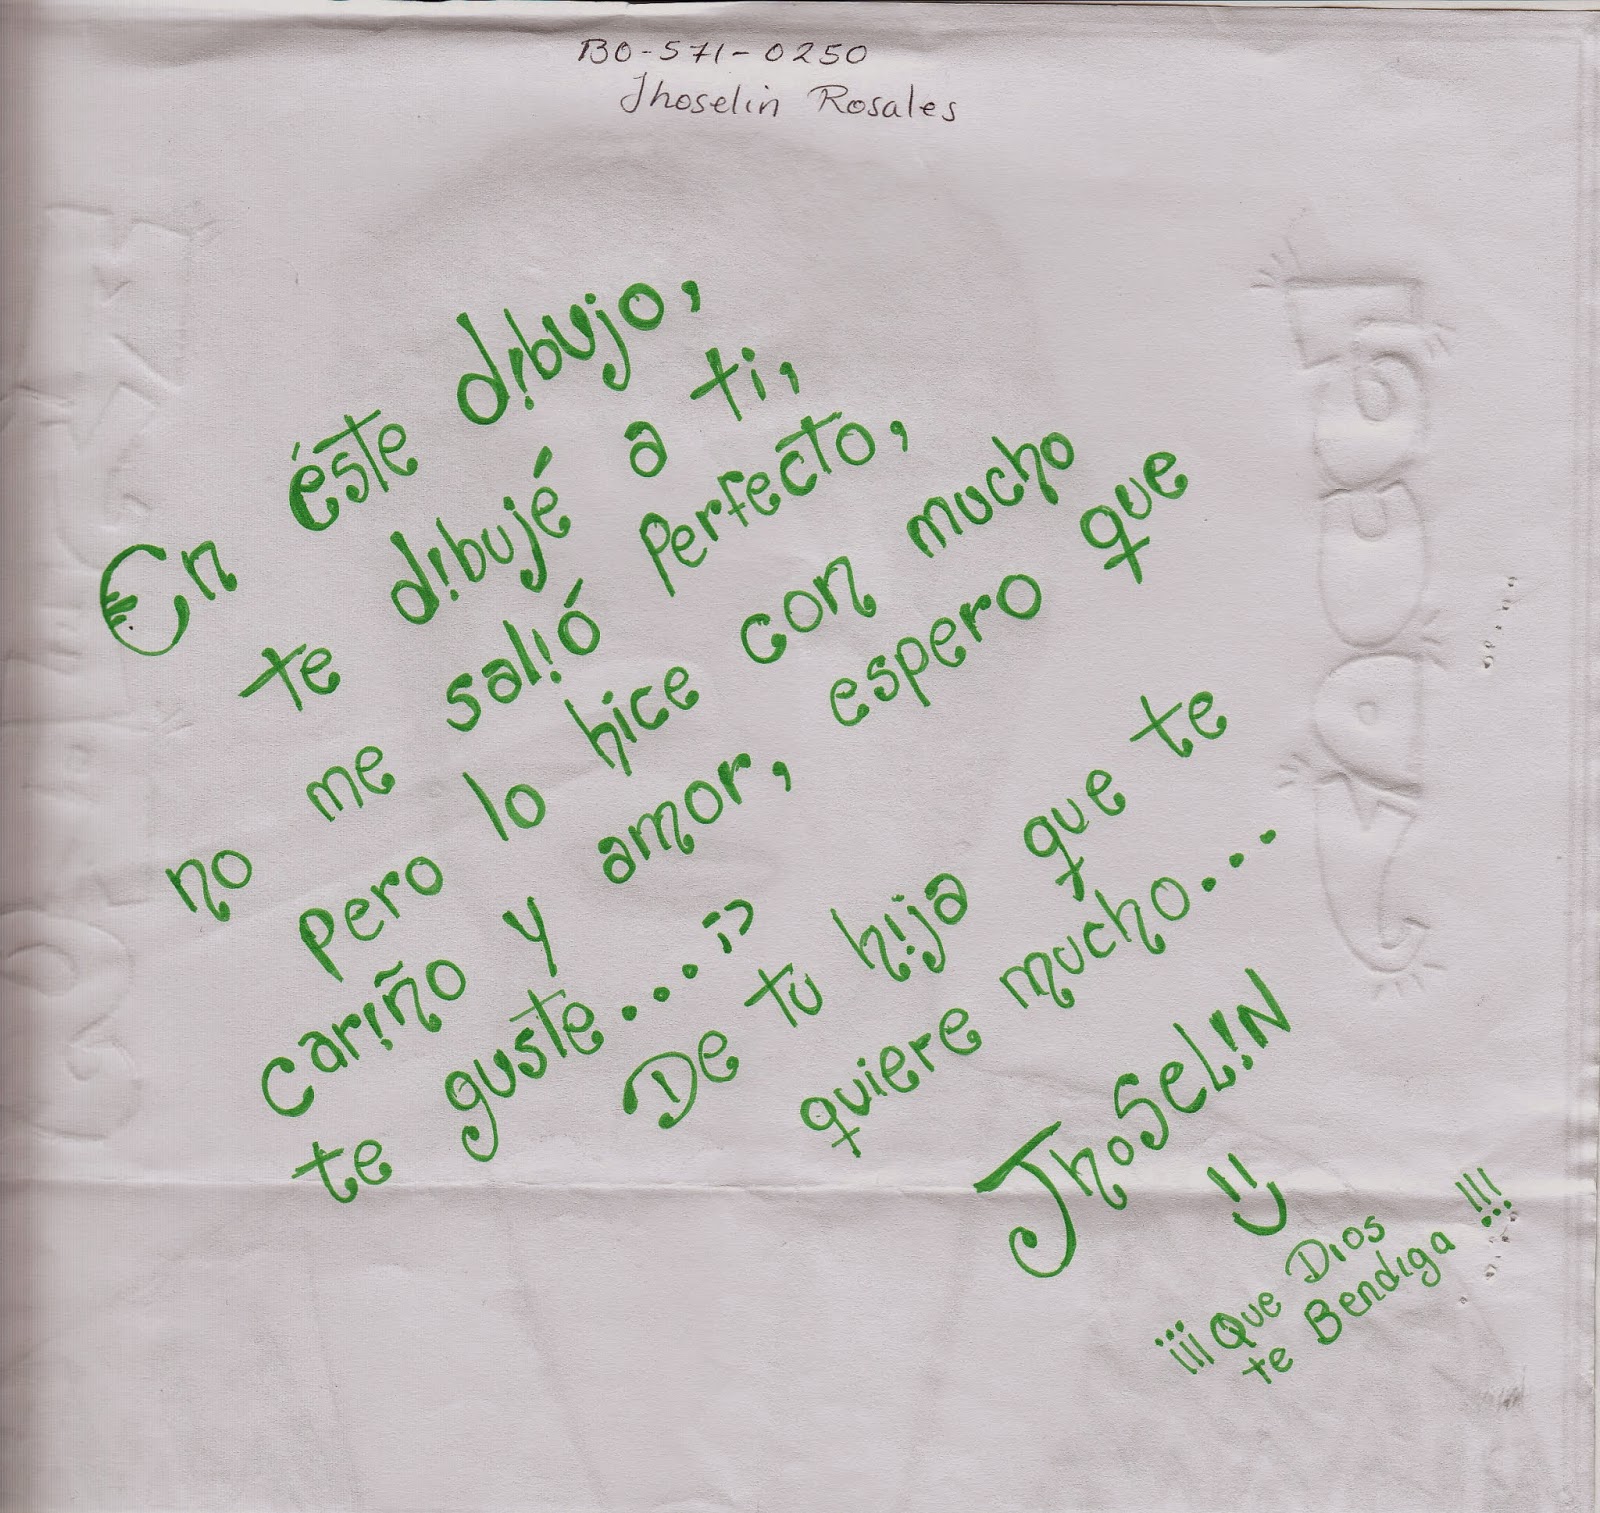 BO-571-0250
Jhoselin Rosales
En éste dibujo,
te dibujé a ti,
no me salió perfecto,
pero lo hice con mucho
cariño y amor, espero que
te guste... :)
De tu hija que te
quiere mucho...
JhoSeLiN
¡¡¡Que Dios
te Bendiga!!!